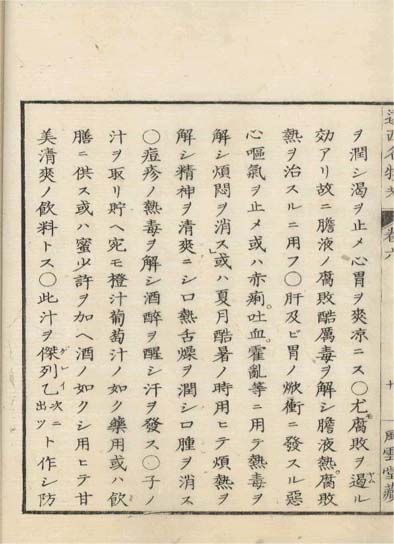 ヲ潤シ渇ヲ止メ心胃ヲ爽凉ニス〇尤モ腐敗ヲ遏ヤムル
効アリ故ニ膽液ノ腐敗酷厲毒ヲ解シ膽液熱腐敗
熱ヲ治スルニ用フ〇肝及ビ胃ノ焮衝ニ發スル惡
心嘔氣ヲ止メ或ハ赤痢。吐血。霍亂等ニ用テ熱毒ヲ
解シ煩悶ヲ消ス或ハ夏月酷暑ノ時用ヒテ煩熱ヲ
解シ精神ヲ清爽ニシ口熱舌燥ヲ潤シ口腫ヲ消ス
〇痘疹ノ熱毒ヲ解シ酒醉ヲ醒シ汗ヲ發ス〇子ノ
汁ヲ取リ貯ヘ宛モ橙汁葡萄汁ノ如ク藥用或ハ飲
膳ニ供ス或ハ蜜少許ヲ加ヘ酒ノ如クシ用ヒテ甘
美清爽ノ飲料トス〇此汁ヲ傑列乙ゲレイ次ニ出ツト作シ防
遠西名物考 卷六 十 風雲堂藏